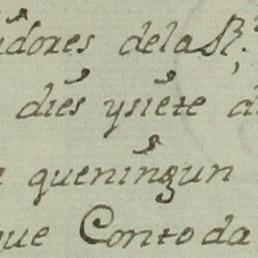 idores dela Rl.
dies ysiete d
queningun
que Contoda